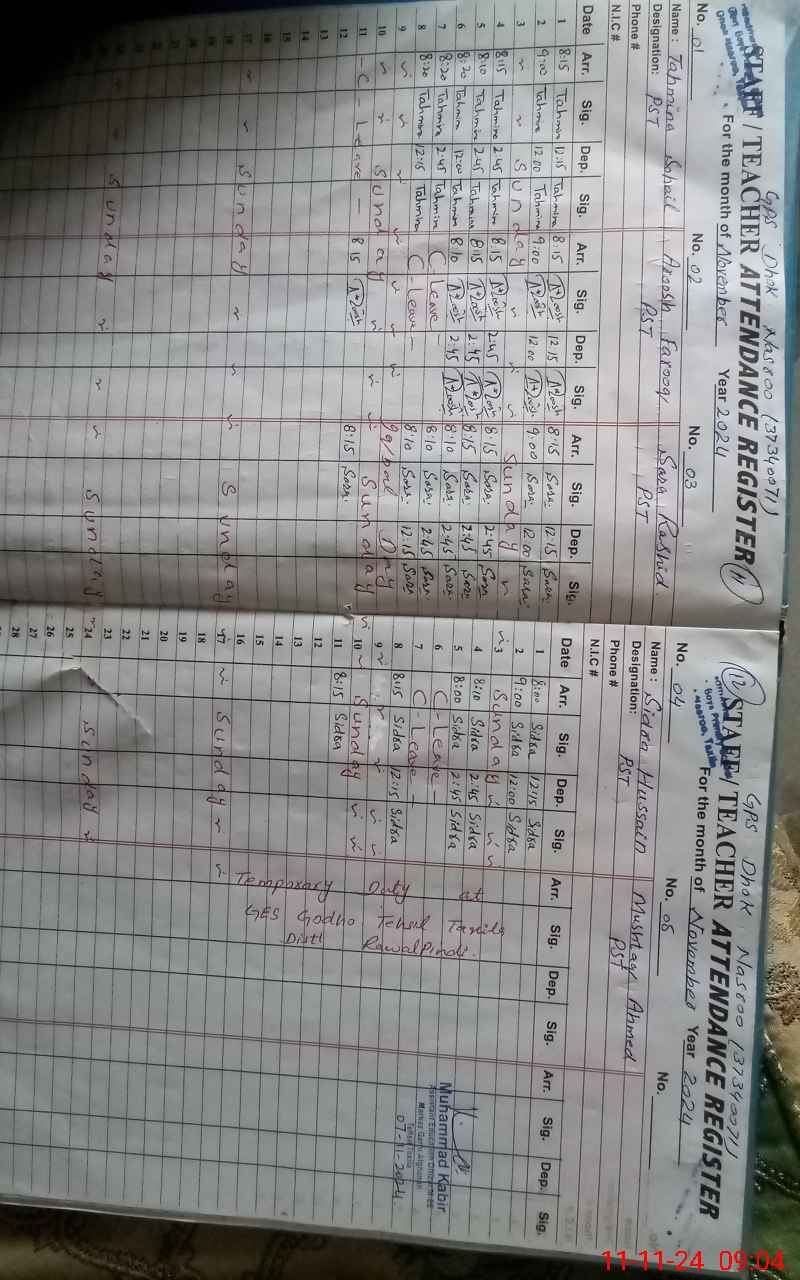 GPS Dhok Nasroo (37340071)
STAFF / TEACHER ATTENDANCE REGISTER 11
For the month of November Year 2024
No. 01 No. 02 No. 03
Name: Tahmina Sohail Aroosh Farooq Sara Rashid.
Designation: PST PST PST
Phone #
N.I.C #
Date Arr. Sig. Dep. Sig. Arr. Sig. Dep. Sig. Arr. Sig. Dep. Sig.
1 8:15 Tahmina 12:15 Tahmina 8:15 Aroosh 12:15 Aroosh 8:15 Sara. 12:15 Sara.
2 9:00 Tahmina 12:00 Tahmina 9:00 Aroosh 12:00 Aroosh 9:00 Sara. 12:00 Sara.
3 Sunday Sunday
4 8:15 Tahmina 2:45 Tahmina 8:15 Aroosh 2:45 Aroosh 8:15 Sara. 2:45 Sara
5 8:10 Tahmina 2:45 Tahmina 8:15 Aroosh 2:45 Aroosh 8:15 Sara. 2:45 Sara.
6 8:20 Tahmina 12:00 Tahmina 8:10 Aroosh 2:45 Aroosh 8:10 Sara. 2:45 Sara.
7 8:20 Tahmina 2:45 Tahmina C-Leave- 8:10 Sara. 2:45 Sara.
8 8:20 Tahmina 12:15 Tahmina C-Leave- 8:10 Sara. 12:15 Sara.
9 Iqbal Day
10 Sunday Sunday
11 -C-Leave- 8:15 Aroosh
12 8:15 Sara.
13
14
15
16
17 Sunday Sunday
18
19
20
21
22
23
24 Sunday Sunday
GPS Dhok Nasroo (37340071)
12 STAFF / TEACHER ATTENDANCE REGISTER
For the month of November Year 2024
No. 04 No. 05 No.
Name: Sidra Hussain Mushtaq Ahmed
Designation: PST PST
Phone #
N.I.C #
Date Arr. Sig. Dep. Sig. Arr. Sig. Dep. Sig. Arr. Sig. Dep. Sig.
1 8:00 Sidra 12:15 Sidra
2 9:00 Sidra 12:00 Sidra
3 Sunday
4 8:10 Sidra 2:45 Sidra
5 8:00 Sidra 2:45 Sidra
6 C-Leave-
7 C-Leave-
8 8:15 Sidra 12:15 Sidra
9
10 Sunday
11 8:15 Sidra
12
13
14
15
16
17 Sunday
18
19
20
21
22
23
24 Sunday
25
26
27
28
Temporary Duty at
GES Godho Tehsil Taxila
Distt Rawalpindi.
Muhammad Kabir
Assistant Education Officer
07-11-2024
11-11-24 09:04